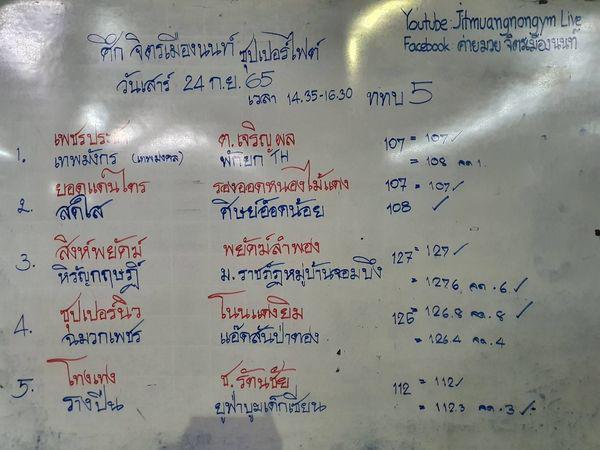 Youtube : Jitmuangnongym Live
Facebook : ค่ายมวย จิตรเมืองนนท์
ศึก จิตรเมืองนนท์ ซุปเปอร์ไฟต์
วันเสาร์ 24 ก.ย. 65
เวลา 14.35-16.30 ททบ 5
1. เพชรประ ต.เจริญผล 107 = 107 ✓
เทพมังกร (เทพมงคล) พักยก TH = 108 ลด 1.
2. ยอดแดนไตร รองออดหนองไม้แดง 107 = 107 ✓
สดใส ศิษย์อ๊อดน้อย 108 ✓
3. สิงห์พยัคฆ์ พยัคฆ์ลำพอง 127 = 127 ✓
หิรัญกฤษฎิ์ ม.ราชภัฏหมู่บ้านจอมบึง = 127.6 ลด .6 ✓
4. ซุปเปอร์นิว โนนแดงยิม 126 = 126.8 ลด .8 ✓
ฉมวกเพชร แอ๊ดสันป่าตอง = 126.4 ลด .4
5. โทงเทง ช.รัตนชัย 112 = 112 ✓
รางปืน ยูฟ่าบูมเด็กเซียน = 112.3 ลด .3 ✓